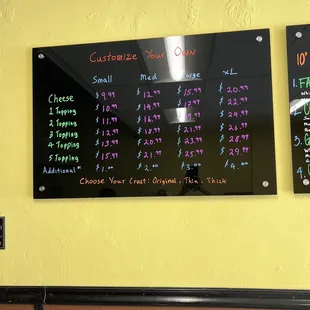 Customize Your Own
Small Med XL
Cheese $9.99 $12.99 $15.99 $20.99
1 Topping $10.99 $14.99 $17.99 $22.99
2 Topping $11.99 $16.99 $19.99
3 Topping $12.99 $18.99 $21.99 $26.99
4 Topping $13.99 $20.99 $23.99 $28.99
5 Topping $15.99 $21.99 $25.99 $29.99
Additional* $1.00 $2.00 $3.00 $4.00
Choose Your Crust: Original, Thin, Thick
10"
1.
3.
4.